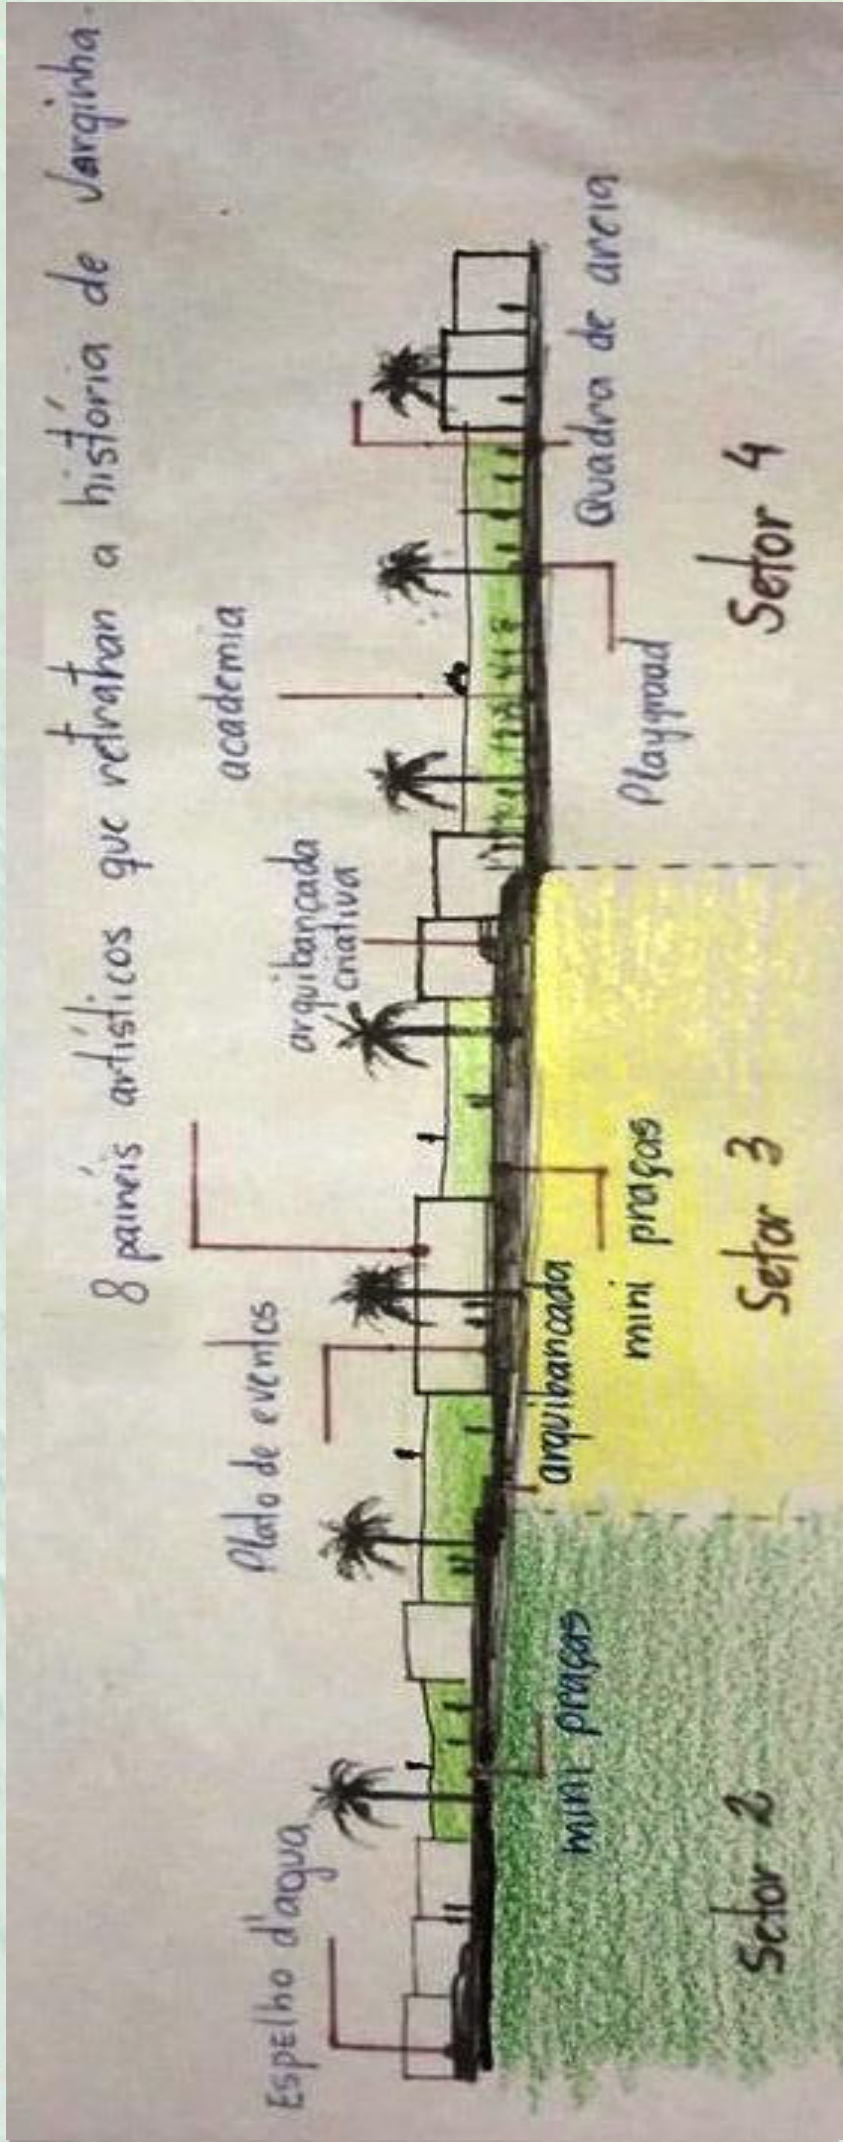 8 painéis artísticos que retratan a história de Varginha.
Espelho d'agua
Plato de eventos
arquibançada
criativa
academia
mini praças
arquibancada
mini praças
Playgroud
Quadra de areia
Setor 2
Setor 3
Setor 4